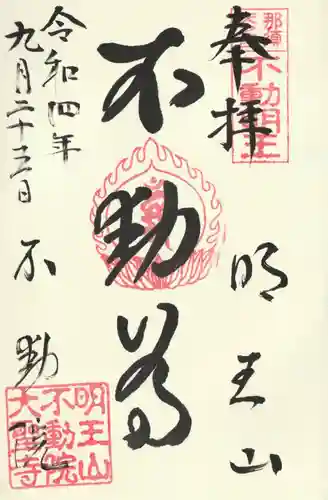 奉拝
明王山
不動尊
令和四年
九月二十三日
不動院
那須
不動明王
明王山
不動院
天聖寺